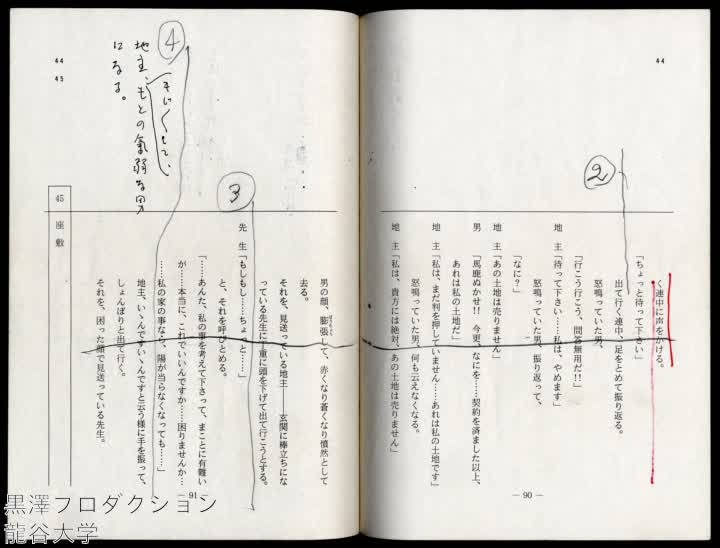 44
②
く連中に声をかける。
「ちょっと待って下さい」
出て行く連中、足をとめて振り返る。
怒鳴っていた男、
「行こう行こう、問答無用だ!!」
地主「待って下さい……私は、やめます」
怒鳴っていた男、振り返って、
「なに?」
地主「あの土地は売りません」
男「馬鹿ぬかせ!! 今更、なにを……契約を済ました以上、
あれは私の土地だ」
地主「私は、まだ判を押していません……あれは私の土地です」
怒鳴っていた男、何も云えなくなる。
地主「私は、貴方には絶対、あの土地は売りません」
― 90 ―
44
45
④
地主、もとの氣弱な男
になる。
③
男の顔、膨張して、赤くなり蒼くなり憤然として
去る。
それを、見送っている地主――玄関に棒立ちにな
っている先生に丁重に頭を下げて出て行こうとする。
先生「もしもし……ちょっと……」
と、それを呼びとめる。
「……あんた、私の事を考えて下さって、まことに有難い
が……本当に、これでいいんですか……困りませんか…
……私の家の事なら、陽が当らなくなっても……」
地主、いゝんですいゝんですと云う様に手を振って、
しょんぼりと出て行く。
それを、困った顔で見送っている先生。
45 座敷
― 91 ―
黒澤プロダクション
龍谷大学